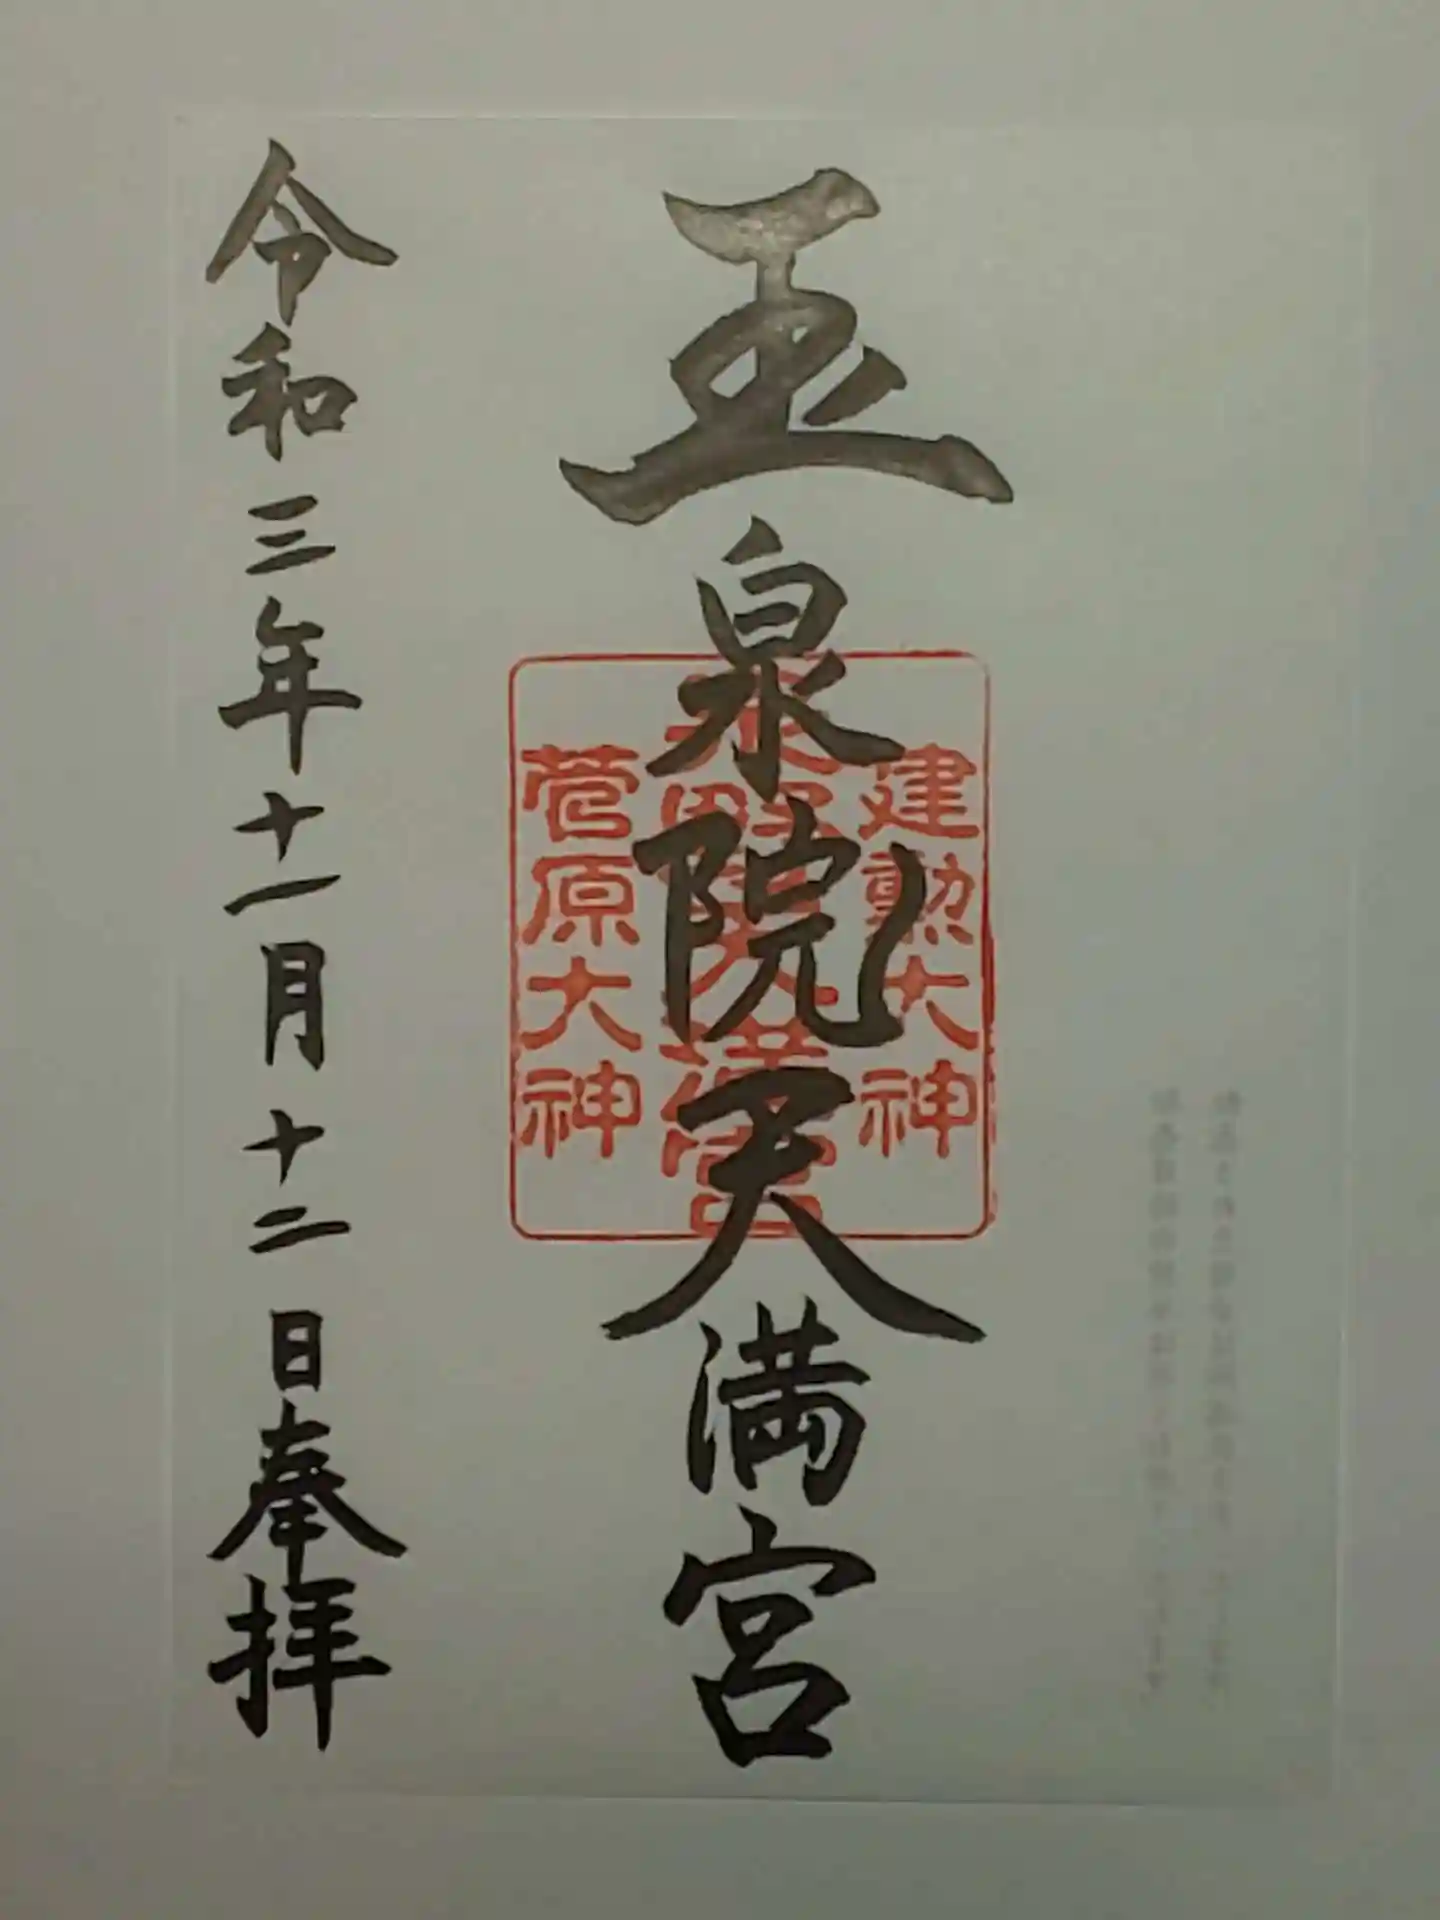 玉泉院天満宮
建勲大神
泉野天満宮
菅原大神
令和三年十一月十二日奉拝